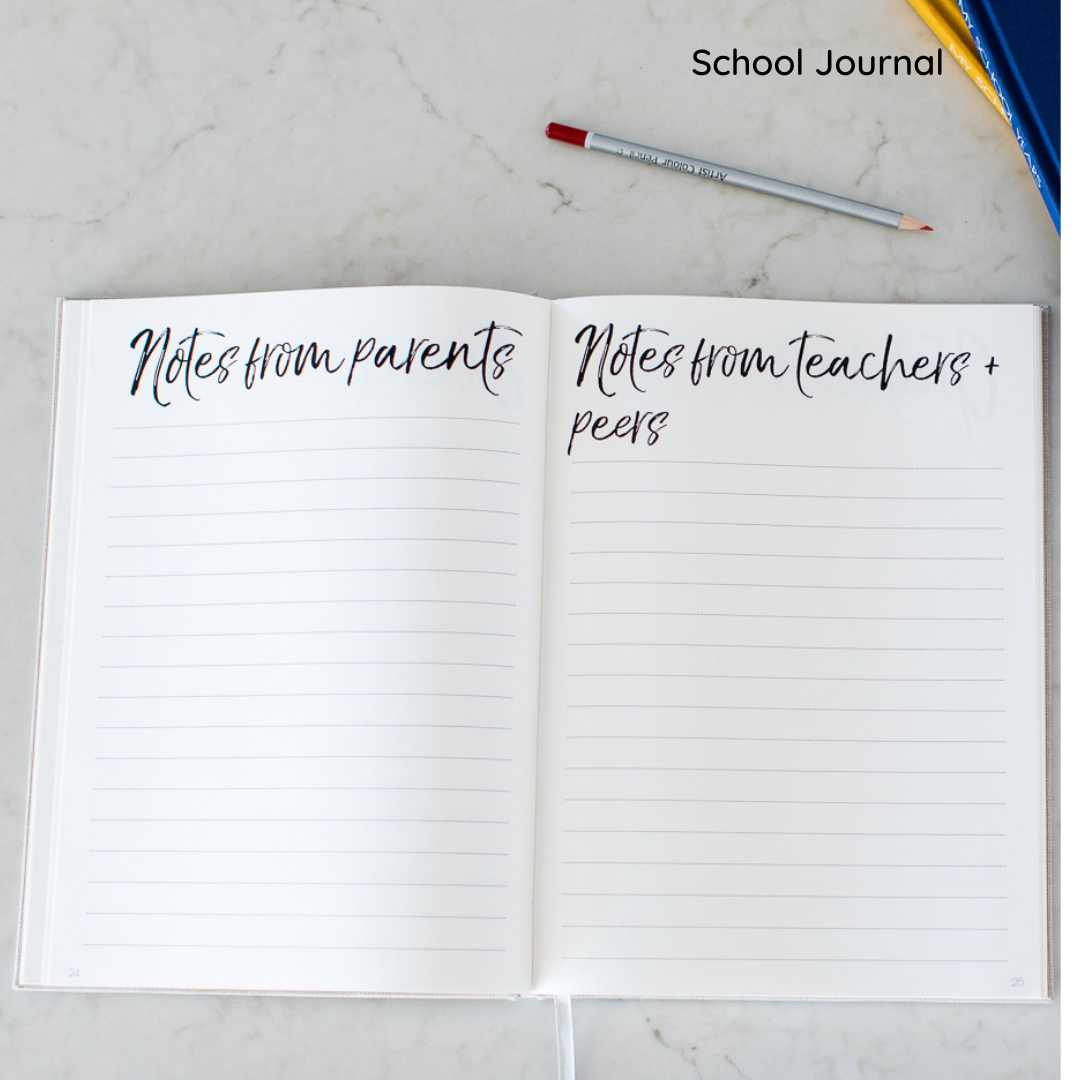 School Journal
MY SCHOOL YEARS
MY SCH
Artist Colour Pencil
Notes from parents
Notes from teachers +
peers
24
25